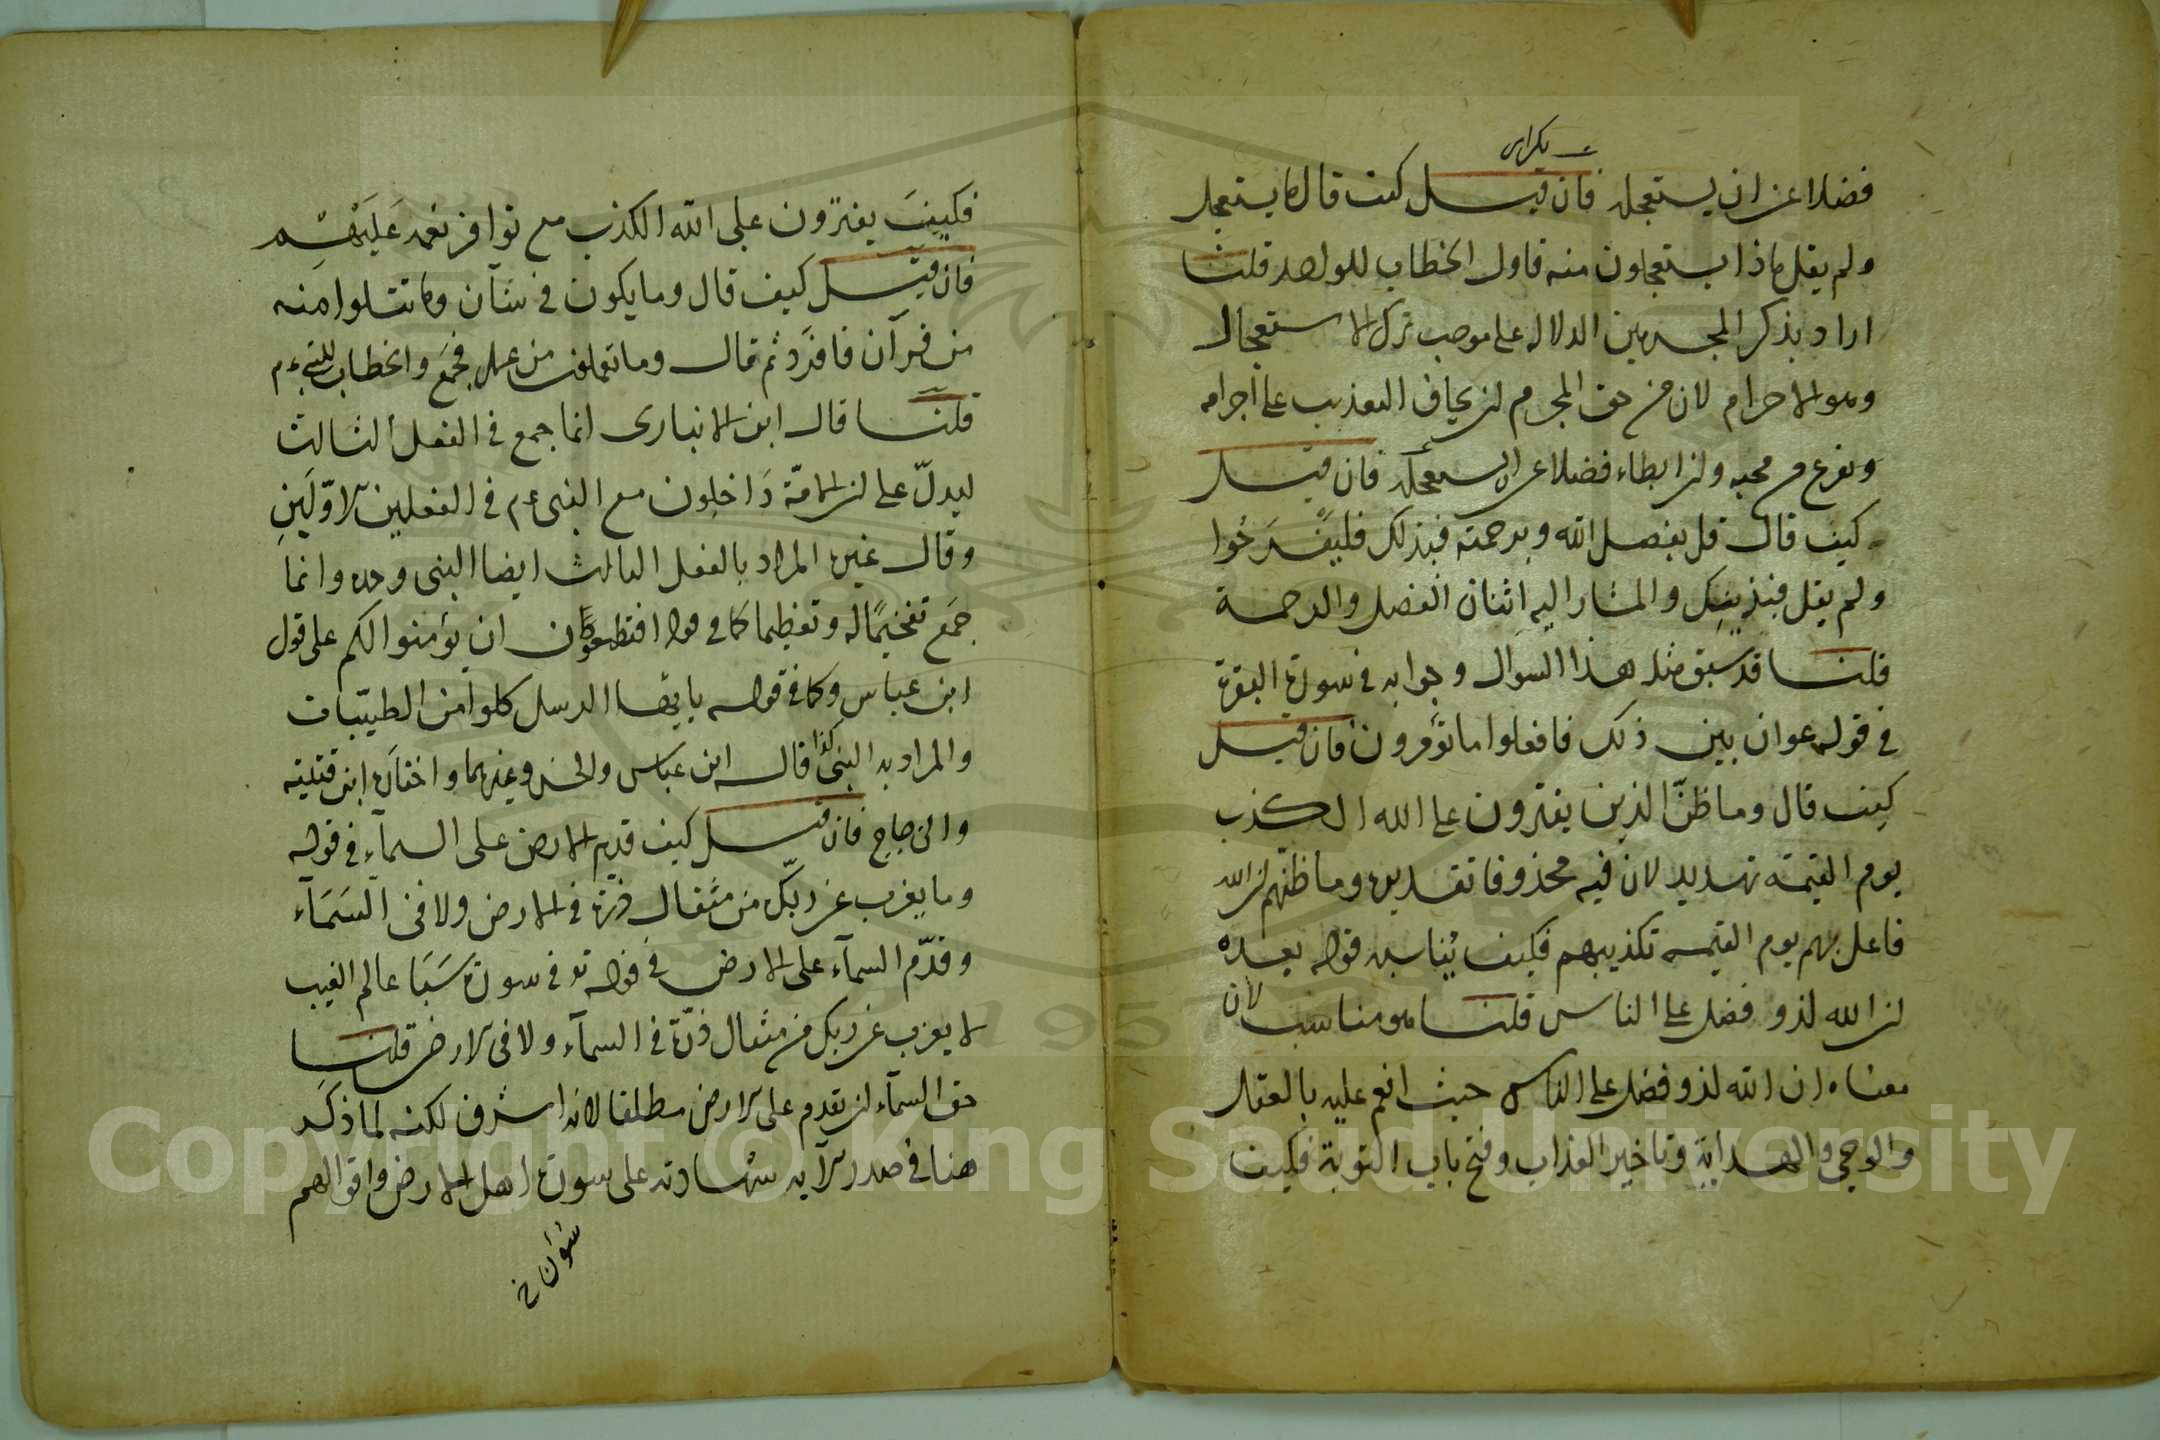 فضلا عن ان يستعجله فان قيل كيف قال ما يستعجل
ولم يقل ماذا يستعجلون منه فاول الخطاب للواحد قلنا
اراد بذكر المجرمين الدلالة على موجب ترك الاستعجال
وهو الاجرام لان من حق المجرم ان يخاف التعذيب على اجرامه
ويفزع من مجيه وان ابطاء فضلا عن ان يستعجله فان قيل
كيف قال قل بفضل الله وبرحمته فبذلك فليفرحوا
ولم يقل فبذينك والمشار اليه اثنان الفضل والرحمة
قلنا قد سبق مثل هذا السوال وجوابه في سورة البقرة
في قوله عوان بين ذلك فافعلوا ما تؤمرون فان قيل
كيف قال وما ظنّ الذين يفترون على الله الكذب
يوم القيمة تهديد لان فيه محذوفا تقديره وما ظنّهم ان الله
فاعل بهم يوم القيمة تكذيبهم فكيف يُناسبه قوله بعده
ان الله لذو فضل على الناس قلنا هو مناسب لان
معناه ان الله لذو فضل على الناس حيث انعم عليه بالعقل
والوحي والهداية وتاخير العذاب وفتح باب التوبة فكيف
فكيفَ يفترون على الله الكذب مع توافر نعمه عَلَيْهْم
فان قيل كيف قال وما يكون في شأن وما تتلوا منه
من قرآن فافرَد ثم قال وما تعملون من عمل فجمَع والخطاب للنبي ءم
قلنا قال ابن الانباري انما جمع في الفعل الثالث
ليدلّ على ان الامّة دَاخلون مع النبي ءم في الفعلين الاوّلَين
وقال غيره المراد بالفعل الثالث ايضا النبي وحده وانما
جمَع تفخيمًا له وتعظيما كما في قوله افتطمعون ان يؤمنوا لكم على قول
ابن عباس وكما في قوله يا ايها الرسل كلوا من الطيّبات
والمراد به النبي كذا قال ابن عباس والحسن وغيرهما واختاره ابن قتيبة
والزجاج فان قيل كيف قدم الارض على السمآء في قوله
وما يعزب عن ربّك من مثقال ذرة في الارض ولا في السَمَآء
وقدّم السمآء على الارض في قوله تع في سورة سَبَا عالم الغيب
لا يعزب عن ربك من مثقال ذرّة في السمآء ولا في الارض قلنا
حق السمآء ان تقدم على الارض مطلقا لانها اشرف لكنه لما ذكَر
هنا في صدر الآية شهادته على سورة اهل الارض واقوالهم
شؤن خ